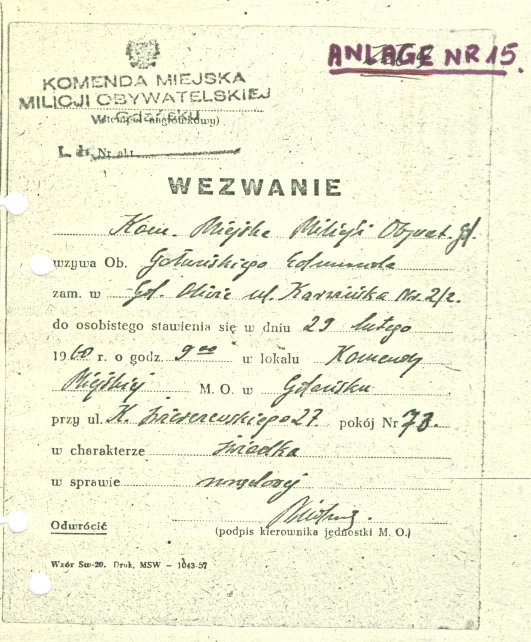 ANLAGE NR 15.
KOMENDA MIEJSKA
MILICJI OBYWATELSKIEJ
w Gdańsku
(stempel nagłówkowy)
L. dz. Nr akt
WEZWANIE
Kom. Miejska Milicji Obywat. Gd.
wzywa Ob. Gołuńskiego Edmunda
zam. w Gd. Oliwie ul. Karwińska Nr. 2/2.
do osobistego stawienia się w dniu 29 lutego
1960 r. o godz. 9⁰⁰ w lokalu Komendy
Miejskiej M. O. w Gdańsku
przy ul. K. Świerczewskiego 27. pokój Nr 73.
w charakterze świadka
w sprawie urzędowej
Odwrócić
(podpis kierownika jednostki M. O.)
Wzór Sw-20. Druk. MSW — 1043-57